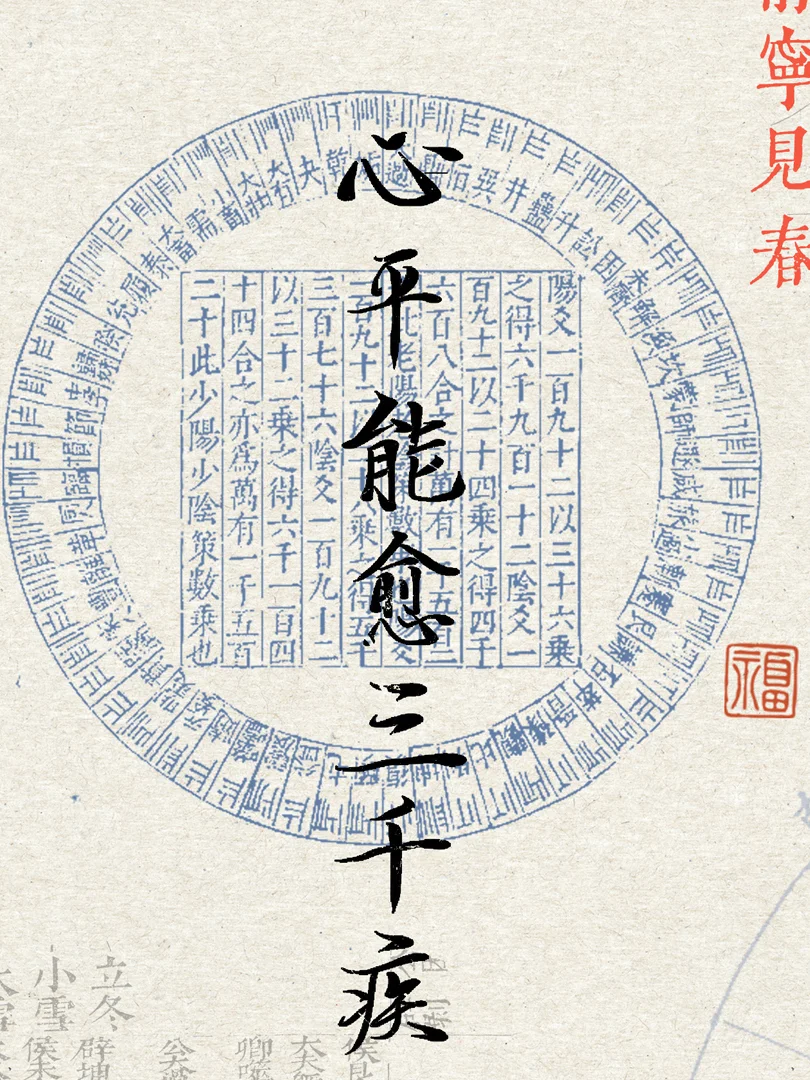 寧見春
心平能愈三千疾
陽爻一百九十二以三十六乘
之得六千九百一十二陰爻一
百九十二以二十四乘之得四千
六百八合之萬有一五百二
此老陽數
一百九十二乘之得五千
三百七十六陰爻一百九十二
以三十二乘之得六千一百四
十四合之亦為萬有一千五百
二十此少陽少陰策數乘也
乾
巽
井
蠱
升
訟
困
未濟
解
渙
坎
蒙
師
遯
咸
旅
小過
漸
蹇
艮
謙
否
萃
晉
豫
觀
比
坤
復
頤
屯
益
震
噬嗑
隨
賁
豐
離
革
臨
損
節
歸妹
睽
兌
履
泰
大畜
需
小畜
大壯
大有
夬
福
立冬
辟坤
小雪
侯未